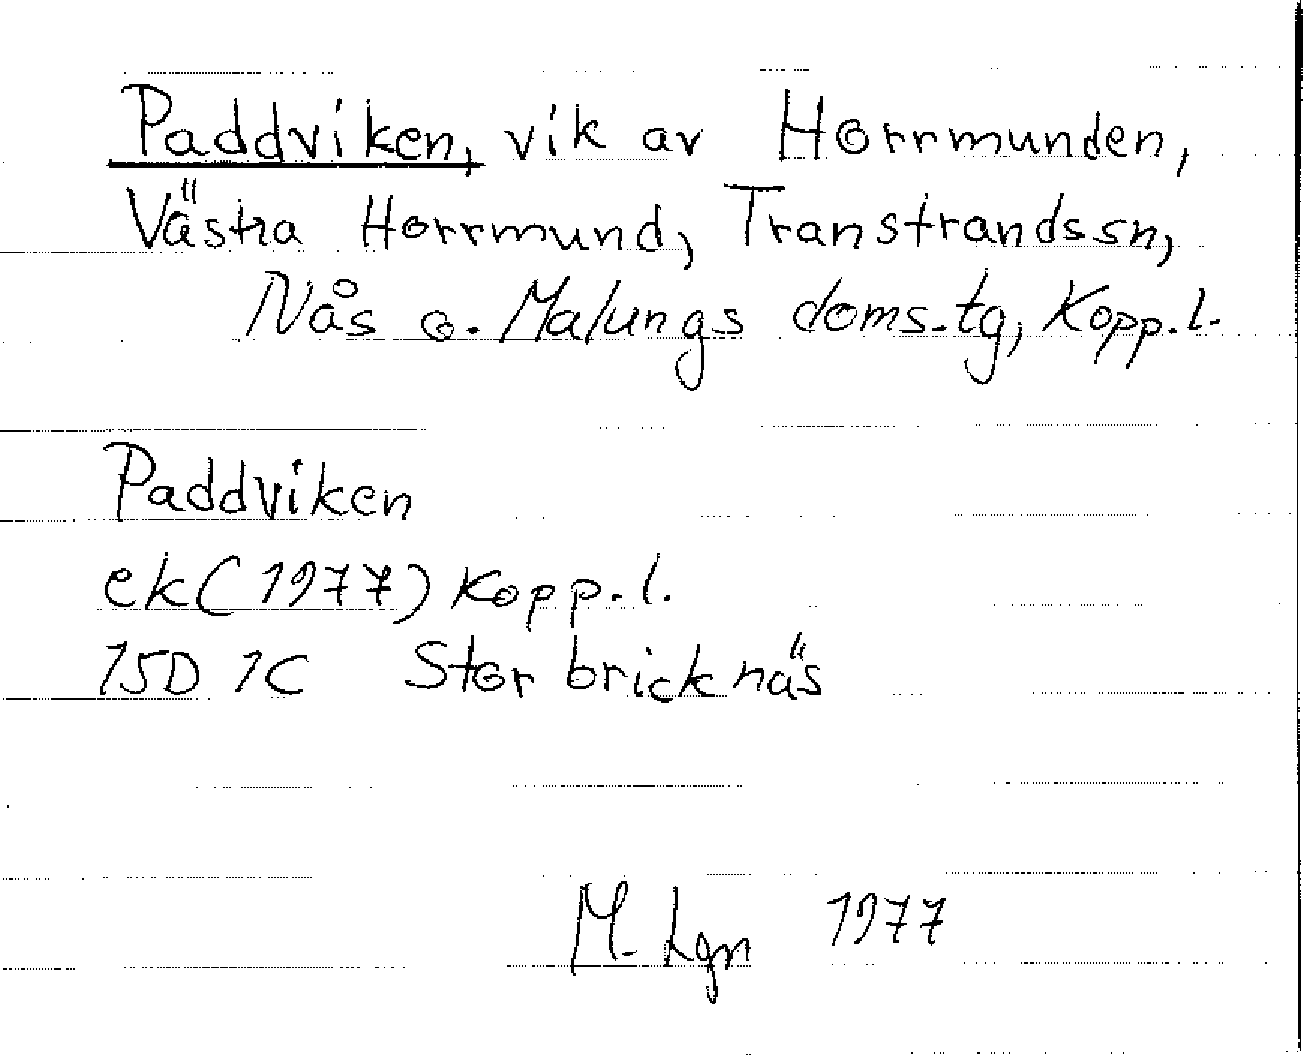 Paddviken, vik av Horrmunden,
Västra Horrmund, Transtrandssn,
Nås o. Malungs doms.tg, Kopp.l.
Paddviken
ek(1977) Kopp.l.
15D 1C Storbricknäs
M. Lgn 1977